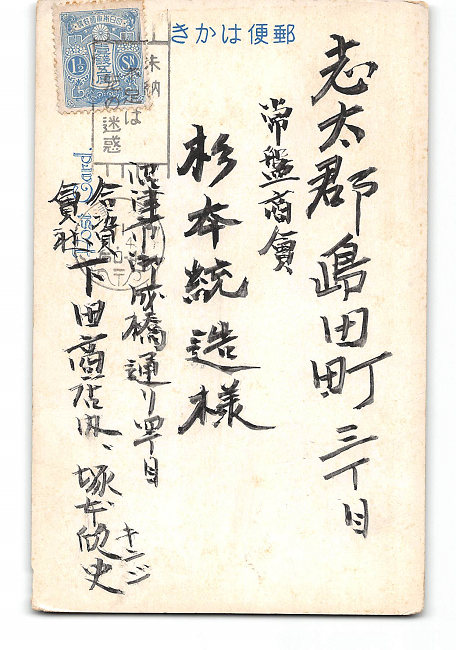 郵便はかき
志太郡島田町三丁目
常盤商會
杉本統造様
沼津市御成橋通り四丁目
合資會社
下田商店内、塚本
キンジ
未納
不足は
の迷惑
1½
Sn